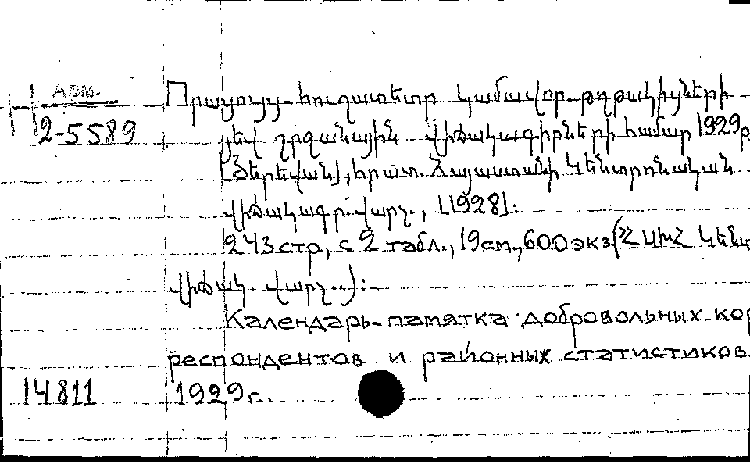 Арм.
2-5589
Որացույց-հուշատետր կամավոր-թղթակիցների
յեվ շրջանային վիճակագիրների համար 1929թ
[Յերեվան], հրատ. Հայաստանի Կենտրոնական
վիճակագր. վարչ., [1928].
243 стр, с 2 табл., 19 см., 600 экз (ՀՍԽՀ Կենտ
վիճակ. վարչ..):
Календарь-памятка добровольных кор
респондентов и районных статистиков
14811 1929 г.